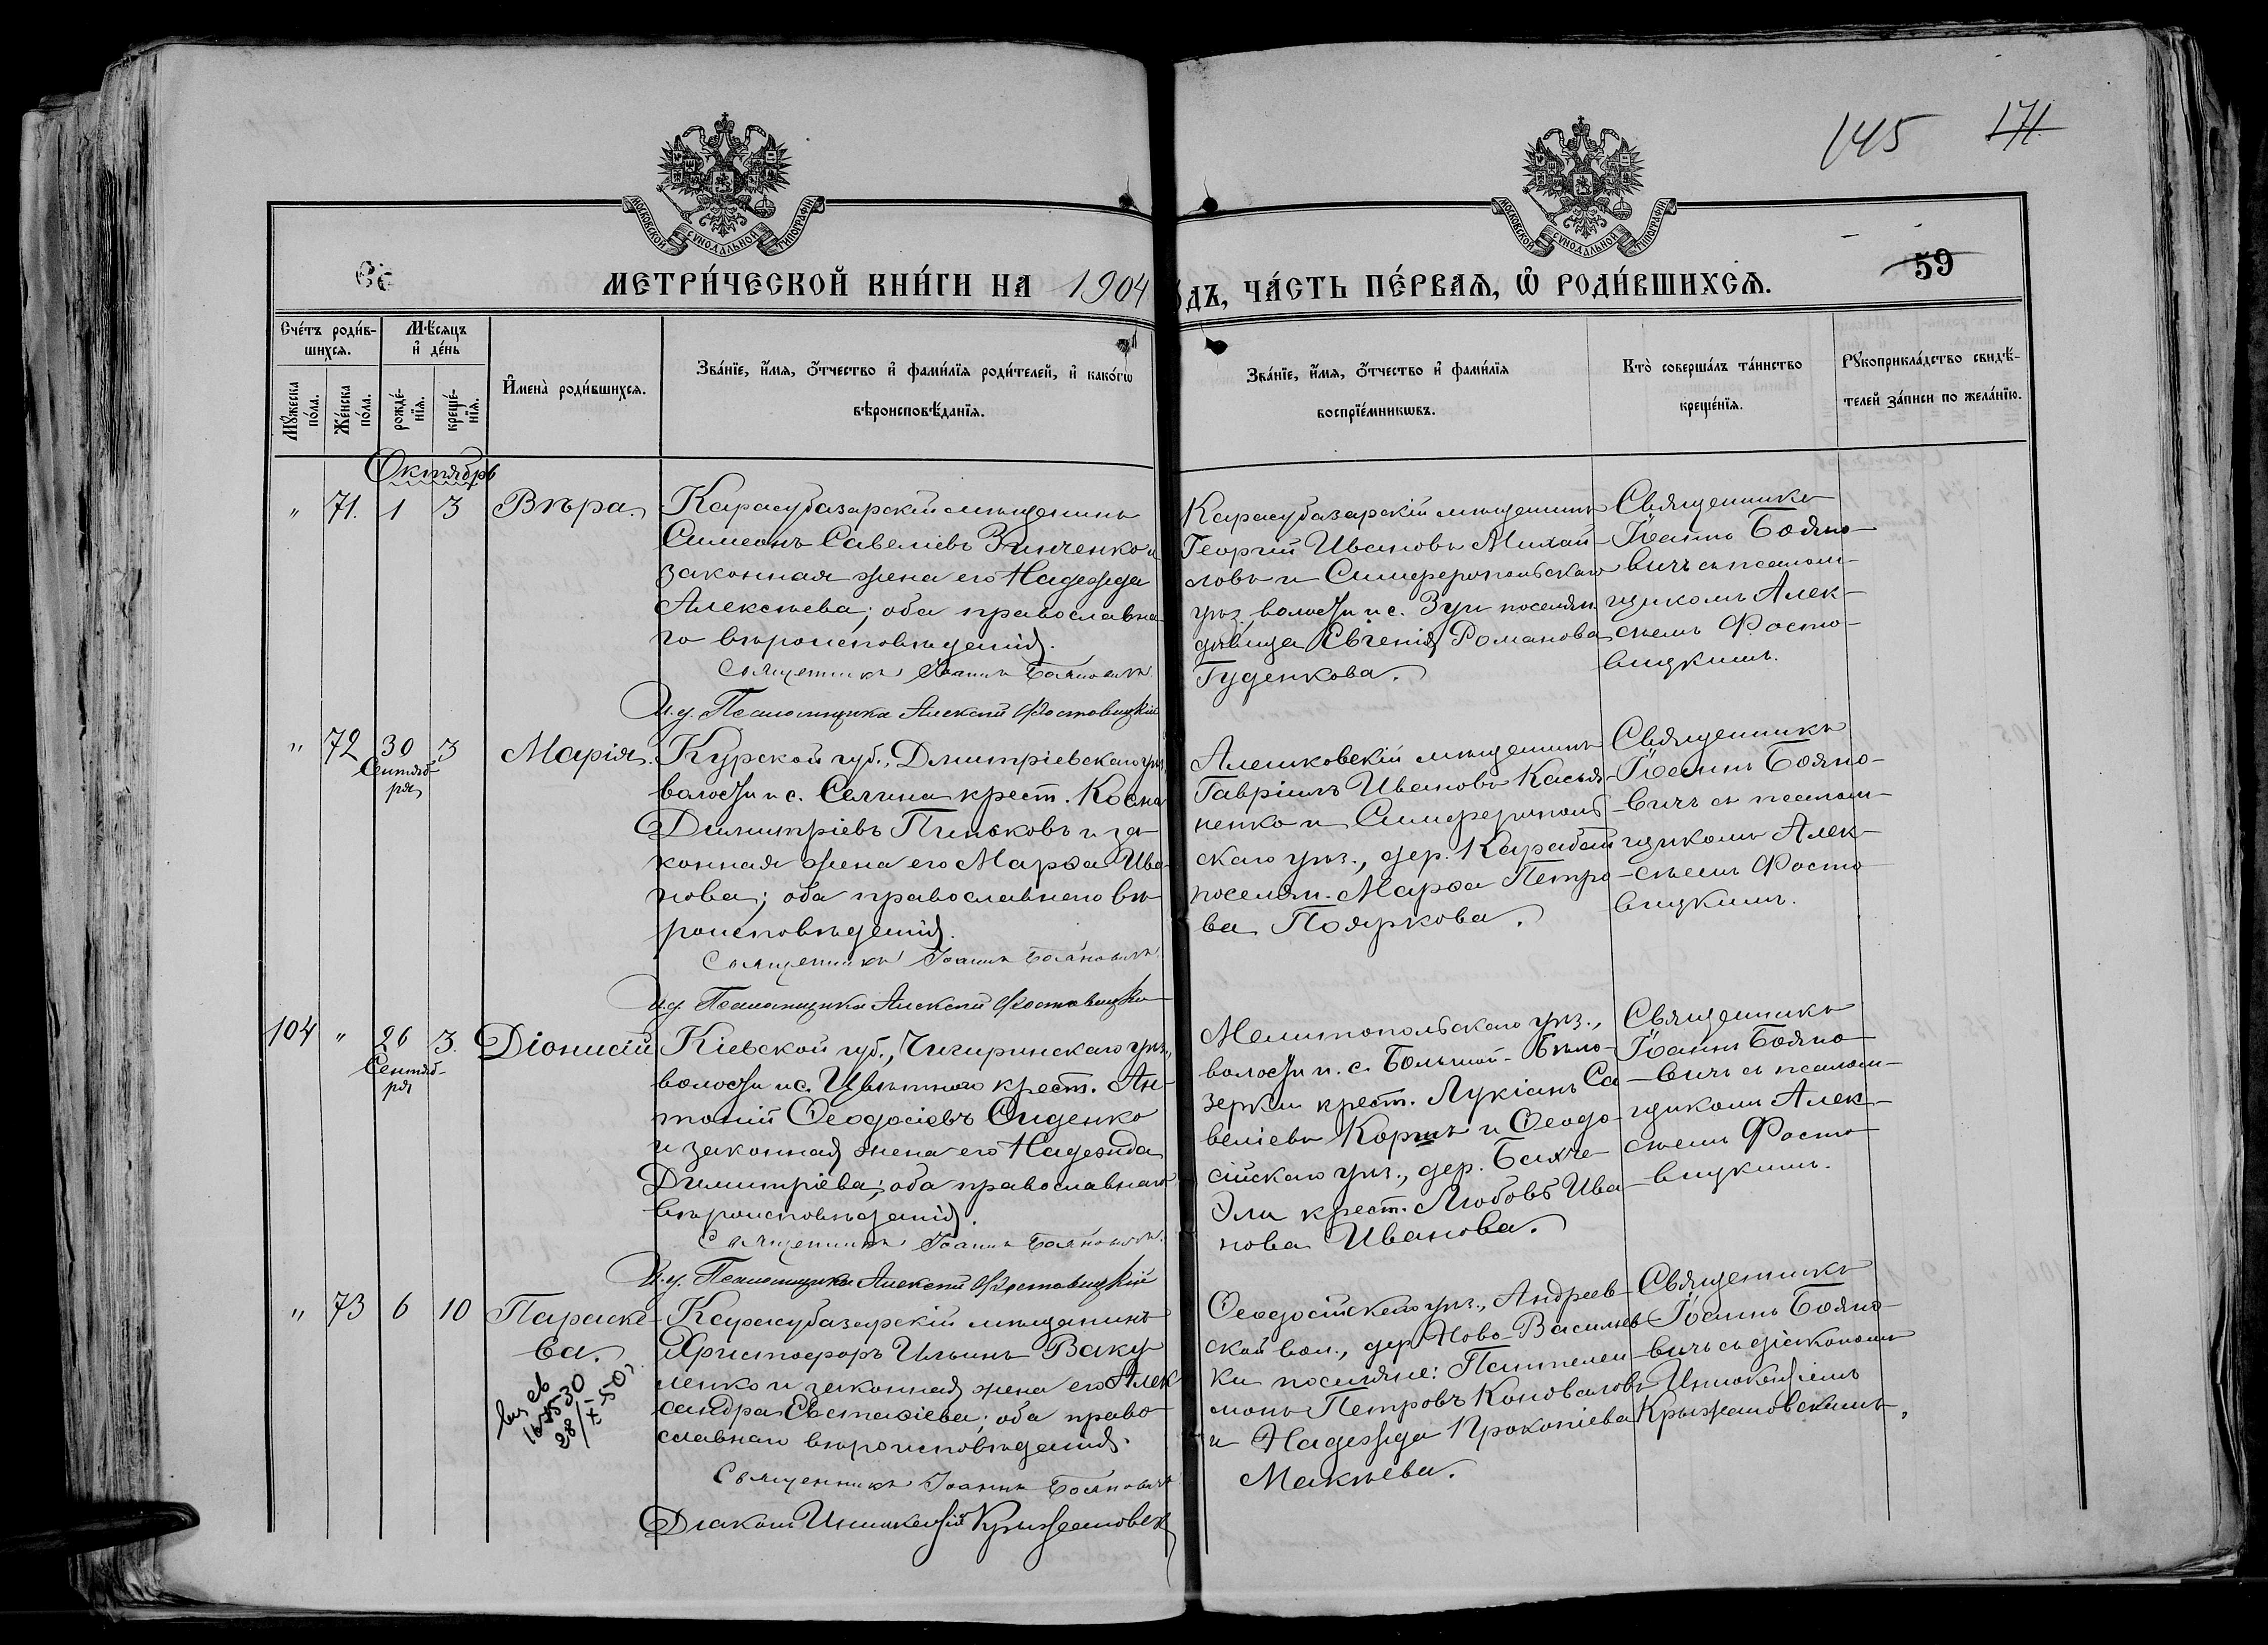 145 171.
МОСКОВСКОЙ СѴНОДАЛЬНОЙ ТИПОГРАФІИ
МОСКОВСКОЙ СѴНОДАЛЬНОЙ ТИПОГРАФІИ
МЕТРИ́ЧЕСКОЙ КНИ́ГИ НА 1904
ДЪ, ЧА́СТЬ ПЕ́РВАЯ, Ѡ҆ РОДИ́ВШИХСЯ.
59
Сче́тъ роди́в-
шихся.
Мѣ́сяцъ
и҆ де́нь
Мꙋ́жеска
по́ла.
Же́нска
по́ла.
рожде́-
нїя.
креще́-
нїя.
И҆мена̀ роди́вшихся.
Зва́нїе, и҆́мя, ѻ҆́тчество и҆ фами́лїя роди́телей, и҆ како́гѡ
вѣроисповѣ́данїя.
Зва́нїе, и҆́мя, ѻ҆́тчество и҆ фами́лїя
воспрїе́мникѡвъ.
Кто̀ соверша́лъ та́инство
креще́нїя.
Рꙋкоприкла́дство свидѣ́-
телей за́писи по жела́нїю.
Октябрь
" 71. 1 3 Вѣра.
Карасубазарскій мѣщанинъ
Симеонъ Савеліевъ Зинченко и
законная жена его Надежда
Алексѣева; оба православна-
го вѣроисповѣданія.
Священникъ Іоаннъ Бояновичъ.
И.д. Псаломщика Алексій Фостовицкій
Карасубазарскій мѣщанинъ
Георгій Ивановъ Михай-
ловъ и Симферопольскаго
уѣз., волости и с. Зуи поселян.
дѣвица Евгенія Романова
Гуденкова.
Священникъ
Іоаннъ Бояно-
вичъ съ псалом-
щикомъ Алек-
сѣемъ Фосто-
вицкимъ.
" 72 30 3 Марія.
Сентяб-
ря
Курской губ., Дмитріевскаго уѣз.,
волости и с. Селина крест. Косма
Димитріевъ Пеньковъ и за-
конная жена его Марѳа Ива-
нова; оба православнаго вѣ-
роисповѣданія.
Священникъ Іоаннъ Бояновичъ.
И.д. Псаломщика Алексій Фостовицкій
Алешковскій мѣщанинъ
Гавріилъ Ивановъ Касья-
ненко и Симферополь-
скаго уѣз., дер. Карабай
поселян. Марѳа Петро-
ва Пояркова.
Священникъ
Іоаннъ Бояно-
вичъ съ псалом-
щикомъ Алек-
сѣемъ Фосто-
вицкимъ.
104 " 26 3. Діонисій
Сентяб-
ря
Кіевской губ., Чигиринскаго уѣз.,
волости и с. Цвѣтного крест. Ан-
тоній Ѳеодосіевъ Сиденко
и законная жена его Надежда
Димитріева; оба православнаго
вѣроисповѣданія.
Священникъ Іоаннъ Бояновичъ.
И.д. Псаломщика Алексій Фостовицкій
Мелитопольскаго уѣз.,
волости и с. Большой-Бѣло-
зерки крест. Лукіанъ Са-
веліевъ Коржъ и Ѳеодо-
сійскаго уѣз., дер. Бахче-
Эли крест. Любовь Ива-
нова Иванова.
Священникъ
Іоаннъ Бояно-
вичъ съ псалом-
щикомъ Алек-
сѣемъ Фосто-
вицкимъ.
" 73 6 10 Параске-
ва.
Карасубазарскій мѣщанинъ
Христофоръ Ильинъ Ваку-
ленко и законная жена его Алек-
сандра Евстаѳіева; оба право-
славнаго вѣроисповѣданія.
Священникъ Іоаннъ Бояновичъ
Діаконъ Иннокентій Крыжановск
Ѳеодосійскаго уѣз., Андреев-
ской вол., дер. Ново-Васильев-
ки поселяне: Пантелеи-
монъ Петровъ Коноваловъ
и Надежда Прокопіева
Макѣева.
Священникъ
Іоаннъ Бояно-
вичъ съ діакономъ
Иннокентіемъ
Крыжановскимъ.